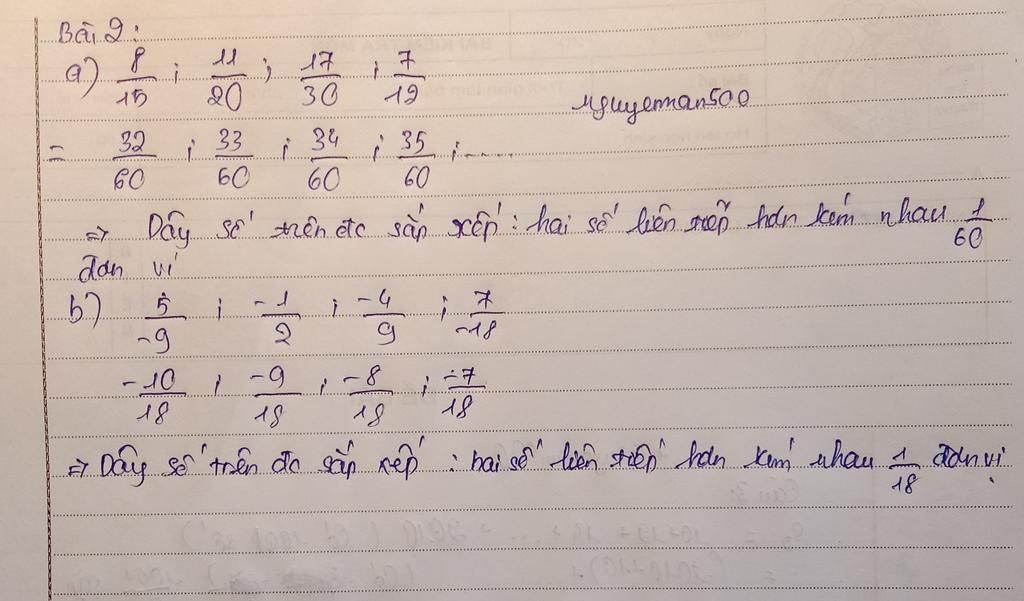 Bài 2:
a) 8/15 ; 11/20 ; 17/30 ; 7/12
nguyenan500
= 32/60 ; 33/60 ; 34/60 ; 35/60 ; .....
=> Dãy số trên đc sắp xếp : hai số liên tiếp hơn kém nhau 1/60
đơn vị
b) 5/-9 ; -1/2 ; -4/9 ; 7/-18
-10/18 ; -9/18 ; -8/18 ; -7/18
=> Dãy số trên đc sắp xếp : hai số liên tiếp hơn kém nhau 1/18 đơn vị